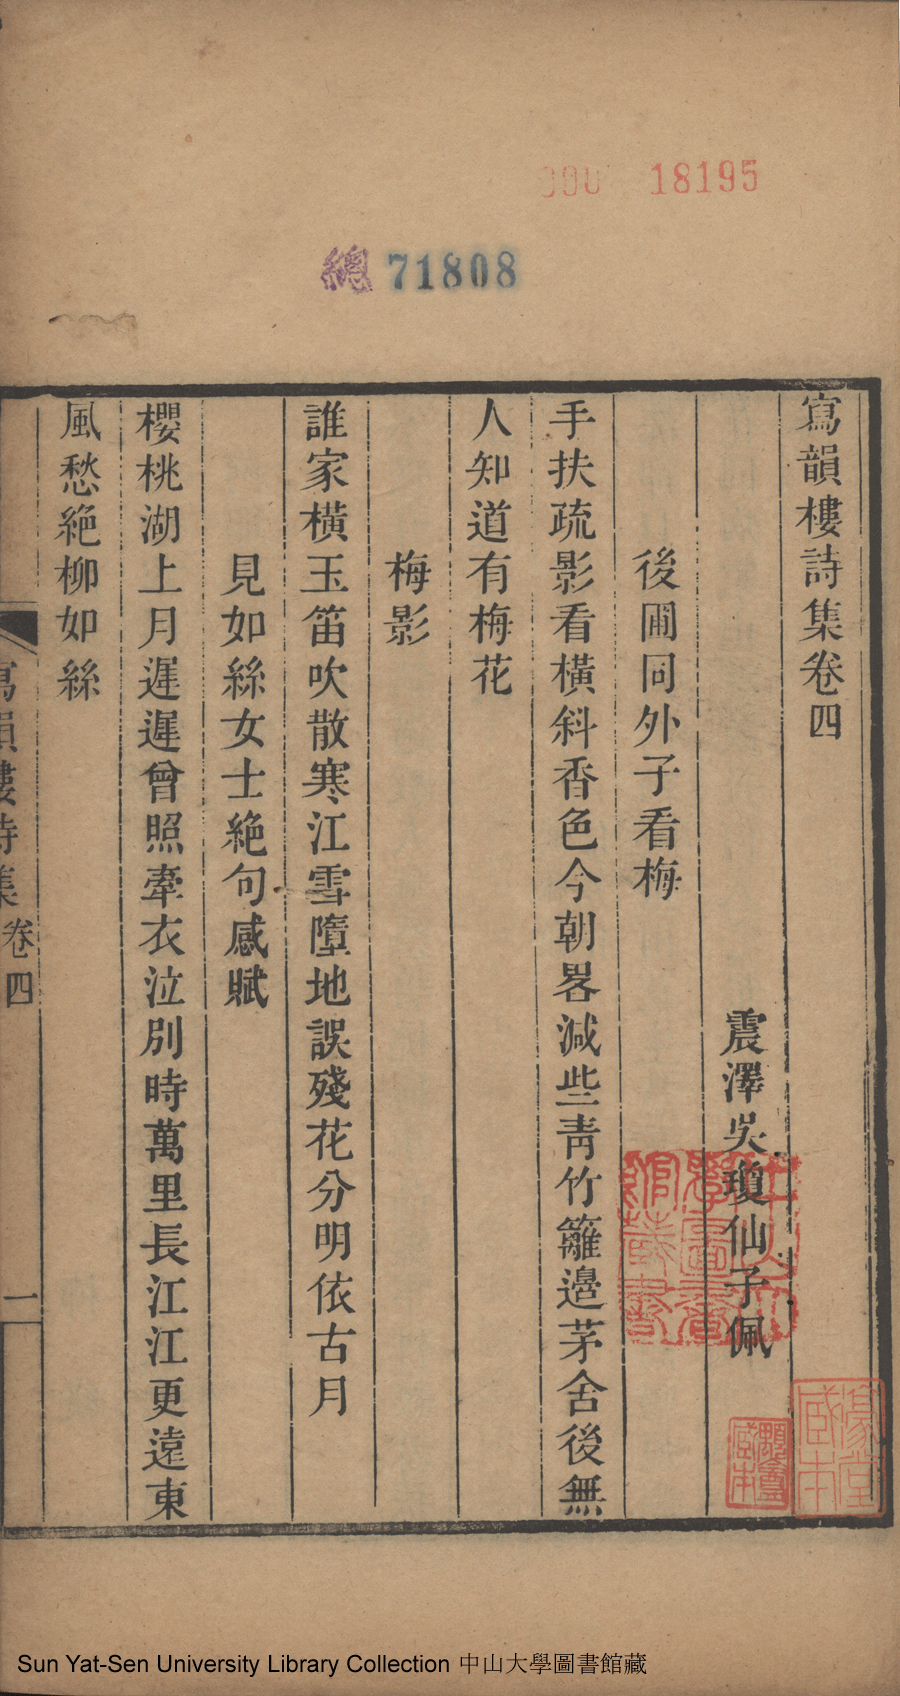 18195
總 71808
寫韻樓詩集卷四
震澤吳瓊仙子佩
後圃同外子看梅
手扶疏影看橫斜香色今朝畧減些靑竹籬邊茅舍後無
人知道有梅花
梅影
誰家橫玉笛吹散寒江雪墮地誤殘花分明依古月
見如絲女士絕句感賦
櫻桃湖上月遲遲曾照牽衣泣別時萬里長江江更遠東
風愁絕柳如絲
寫韻樓詩集卷四
一
Sun Yat-Sen University Library Collection 中山大學圖書館藏